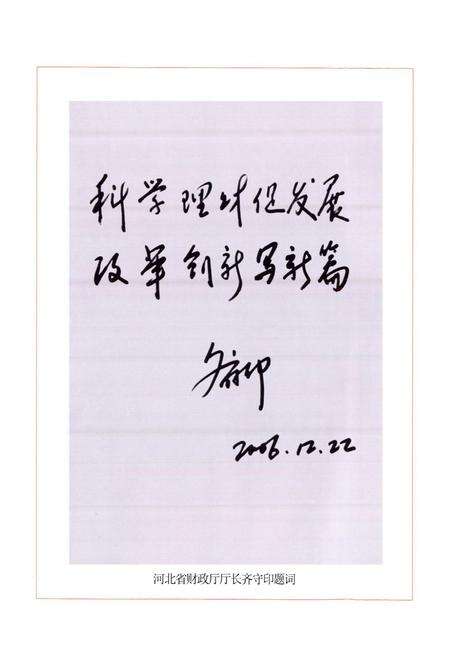 科学理财促发展
改革创新写新篇
齐守印
2006.12.22
河北省财政厅厅长齐守印题词